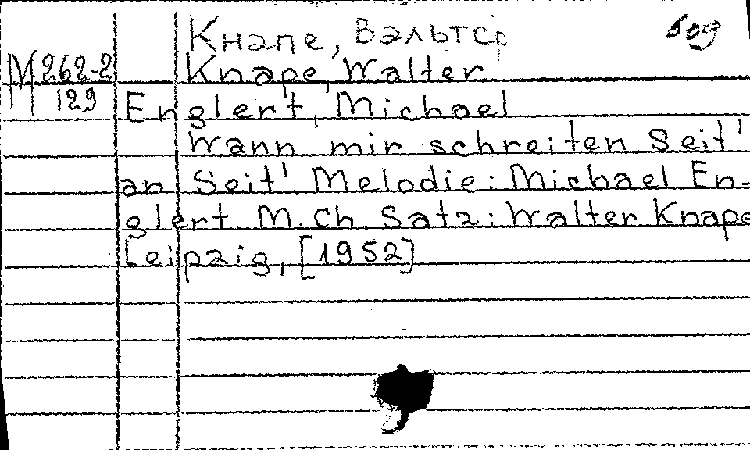 Кнапе, Вальтер
М 262-2
129
Knape, Walter
Englert, Michael
Wann mir schreiten Seit'
an Seit' Melodie: Michael En-
glert M. Ch Satz: Walter Knape
Leipzig, [1952]